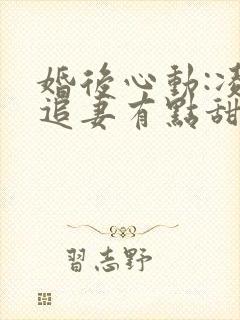 婚後心動:
追妻有點甜
習志野